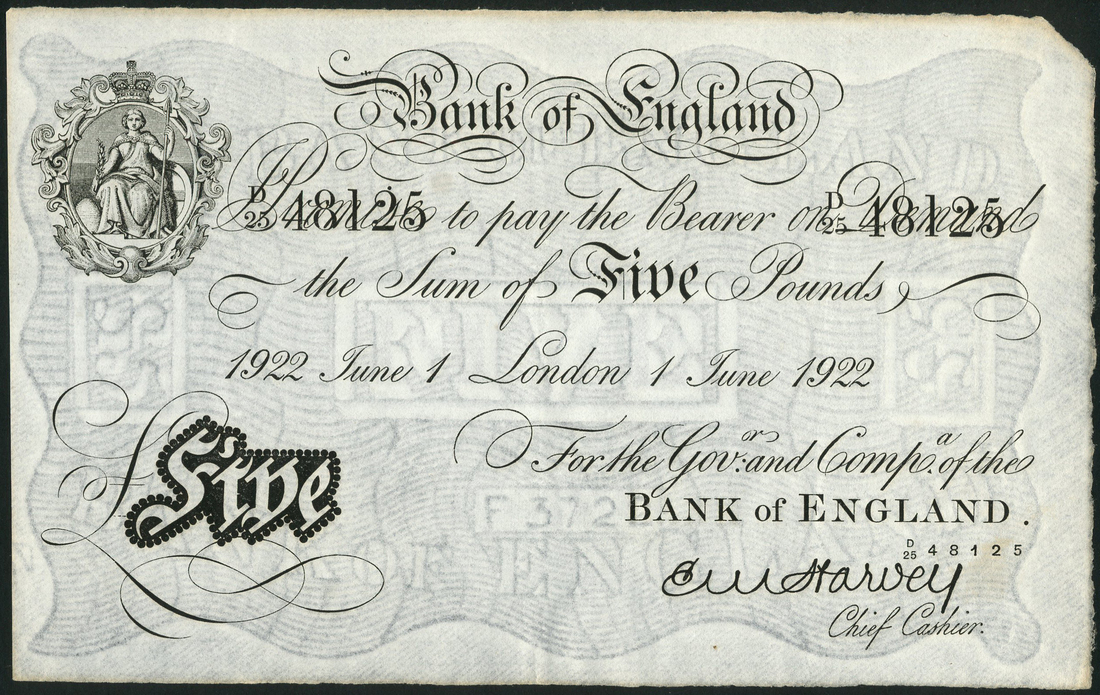 Bank of England
D/25 48125 I Promise to pay the Bearer on Demand D/25 48125
the Sum of Five Pounds
1922 June 1 London 1 June 1922
For the Govr: and Compa. of the
£Five
BANK of ENGLAND.
D/25 48125
E M Harvey
Chief Cashier.
FIVE
F 372